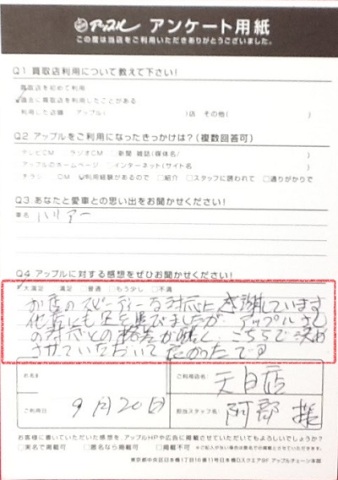 アップル アンケート用紙
この度は当店をご利用いただきありがとうございました。
Q1 買取店利用について教えて下さい!
買取店を初めて利用
過去に買取店を利用したことがある
利用した店舗 アップル( )店 その他( )
Q2 アップルをご利用になったきっかけは?(複数回答可)
テレビCM ラジオCM 新聞 雑誌(媒体名/ )
アップルのホームページ インターネット(サイト名 )
チラシ DM 利用経験があるので 紹介 スタッフに誘われて 通りがかりで
Q3 あなたと愛車との思い出をお聞かせください!
車名 ハリアー
Q4 アップルに対する感想をぜひお聞かせください!
大満足 満足 普通 もう少し 不満
お店のスピーディーな対応に感謝しています
他店にも足を運びましたが アップルさん
の対応との格差が激しく こちらで決め
させていただいて よかったです
お名前 ご利用店名 天白店
ご利用日 9月20日 担当スタッフ名 阿部 様
お客様に書いていただいた感想をアップルHPや広告に掲載させていただいてもよろしいでしょうか?
実名で掲載可 匿名なら掲載可 掲載不可